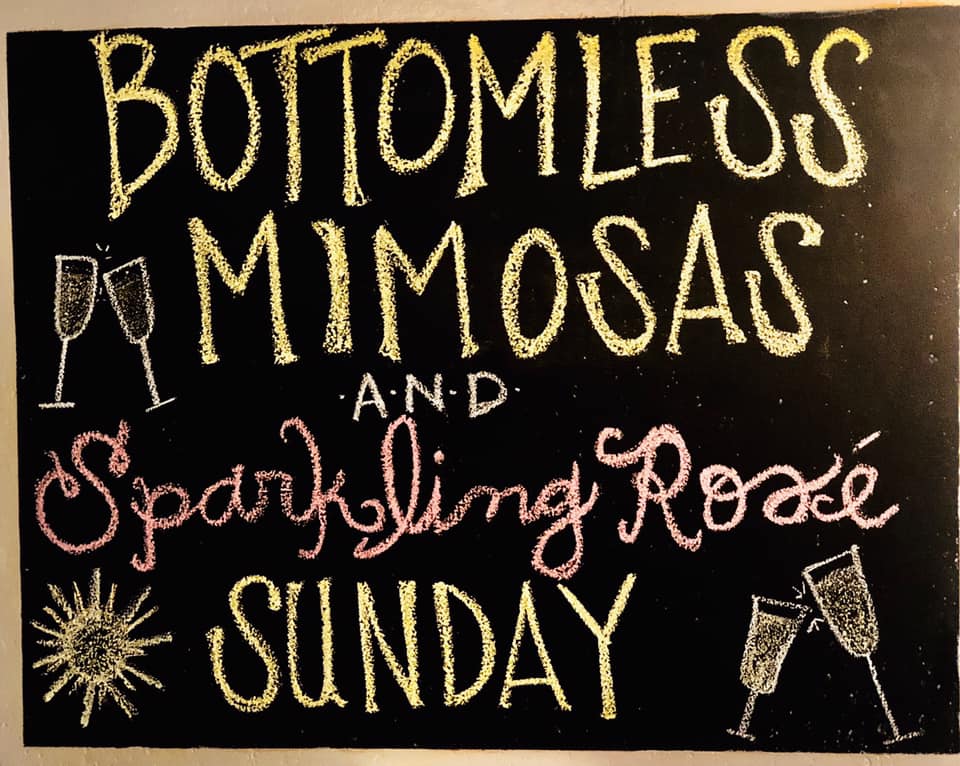 BOTTOMLESS
MIMOSAS
·A·N·D·
Sparkling Rosé
SUNDAY